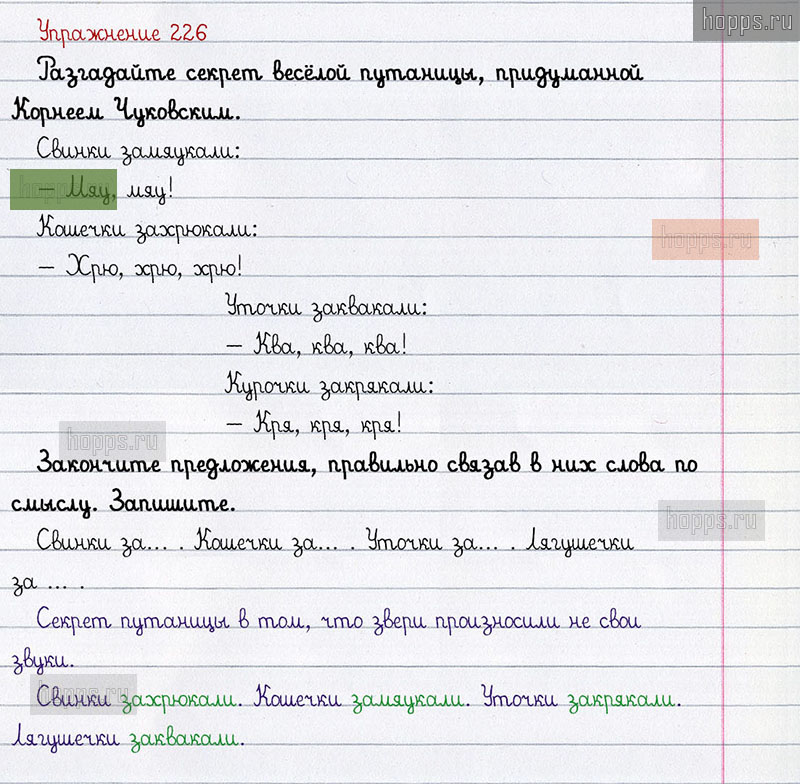 hopps.ru
Упражнение 226
Разгадайте секрет весёлой путаницы, придуманной
Корнеем Чуковским.
Свинки замяукали:
hopps.ru
— Мяу, мяу!
Кошечки захрюкали:
hopps.ru
— Хрю, хрю, хрю!
Уточки заквакали:
— Ква, ква, ква!
Курочки закрякали:
— Кря, кря, кря!
hopps.ru
Закончите предложения, правильно связав в них слова по
смыслу. Запишите.
hopps.ru
Свинки за... . Кошечки за... . Уточки за... . Лягушечки
за ... .
Секрет путаницы в том, что звери произносили не свои
звуки.
hopps.ru
Свинки захрюкали. Кошечки замяукали. Уточки закрякали.
Лягушечки заквакали.